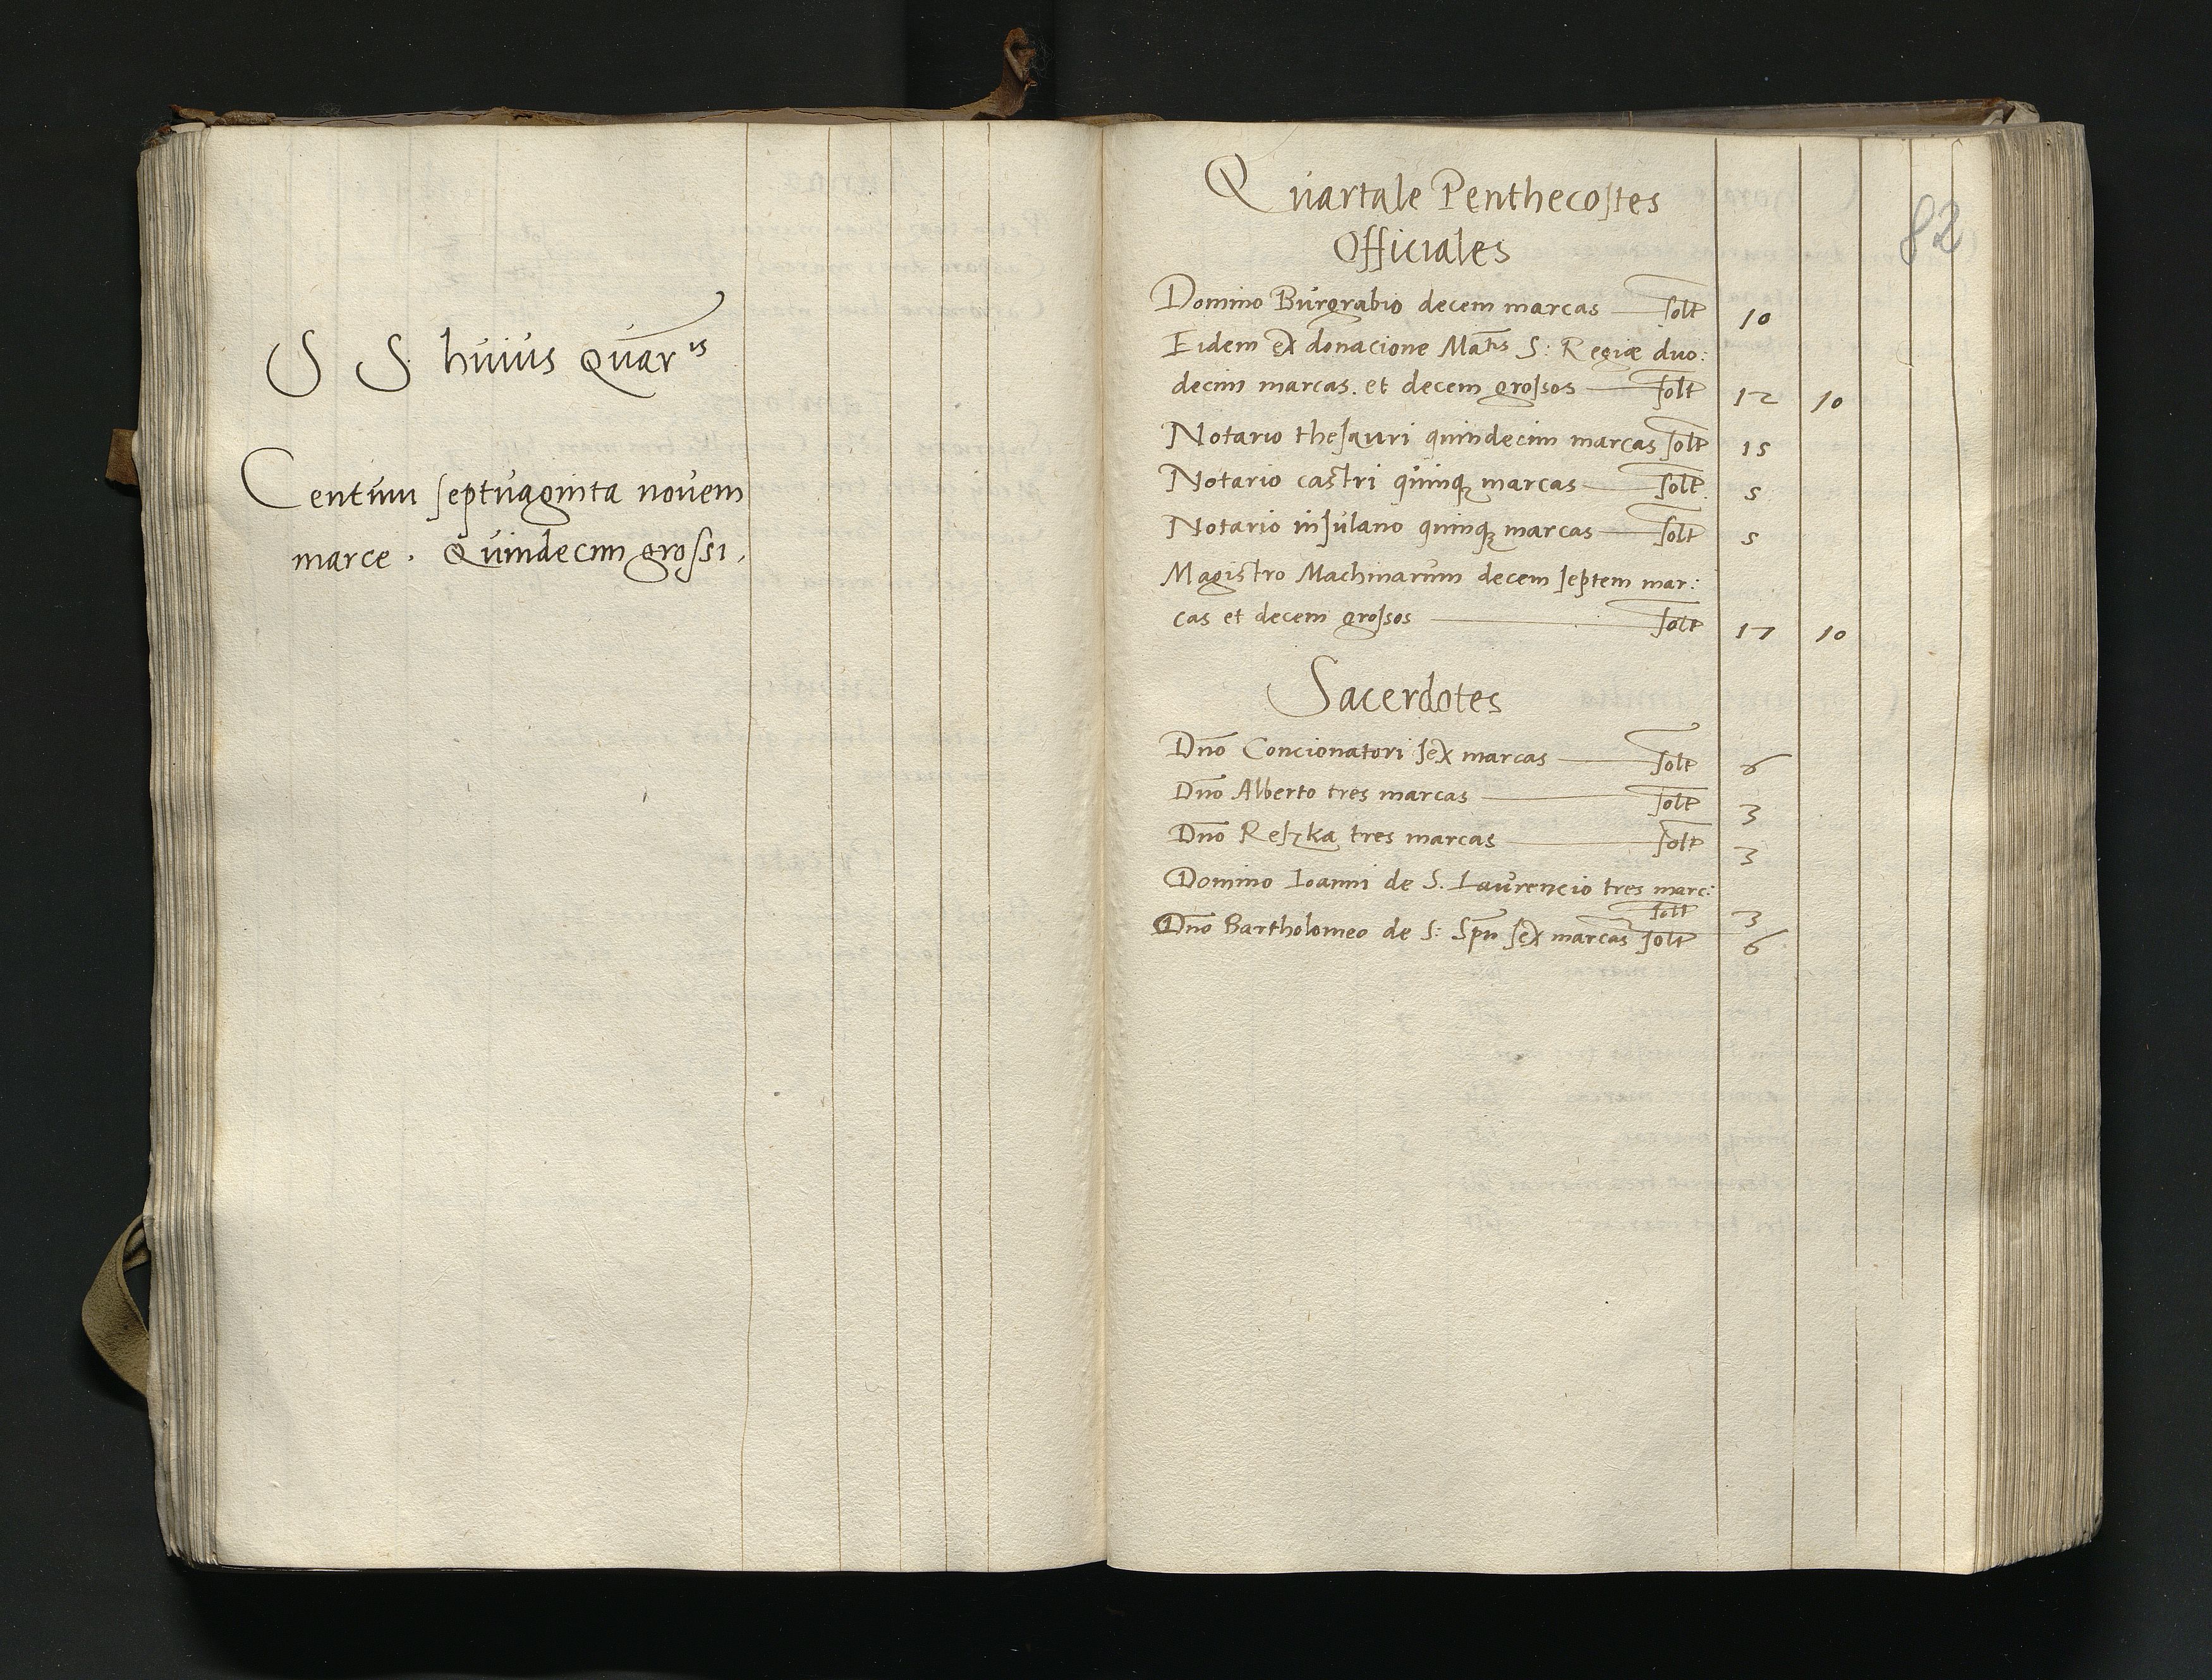 S S huius Quar^is
Centum septuaginta novem
marce. Quindecim grossi.
82
Quartale Penthecostes
Officiales
Domino Burgrabio decem marcas solt 10
Eidem ex donacione Ma^tis S: Regiæ duo:
decim marcas. et decem grossos solt 12 10
Notario thesauri quindecim marcas solt 15
Notario castri quinq; marcas solt 5
Notario insulano quinq; marcas solt 5
Magistro Machinarum decem septem mar:
cas et decem grossos solt 17 10
Sacerdotes
Dno Concionatori sex marcas solt 6
Dno Alberto tres marcas solt 3
Dno Reszka tres marcas solt 3
Domino Ioanni de S. Laurencio tres marc:
solt 3
Dno Bartholomeo de S: Spu sex marcas solt 6